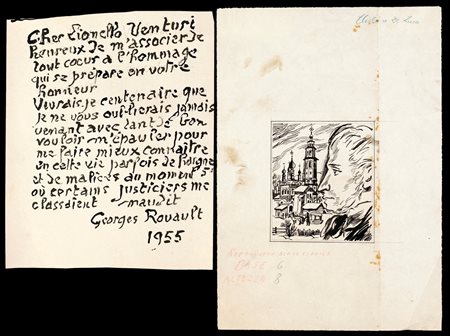 Cher Lionello Venturi
heureux je m'associer de
tout cœur à l'hommage
qui se prépare en votre
honneur
Vivrais je centenaire que
je ne vous oublierais jamais
venant avec tant de bon
vouloir m'épauler pour
me faire mieux connaître
en cette vie parfois de
et de malices au moment
où certains justiciers me
classaient maudit
Georges Rouault
1955
BASE 6
ALTEZZA 8